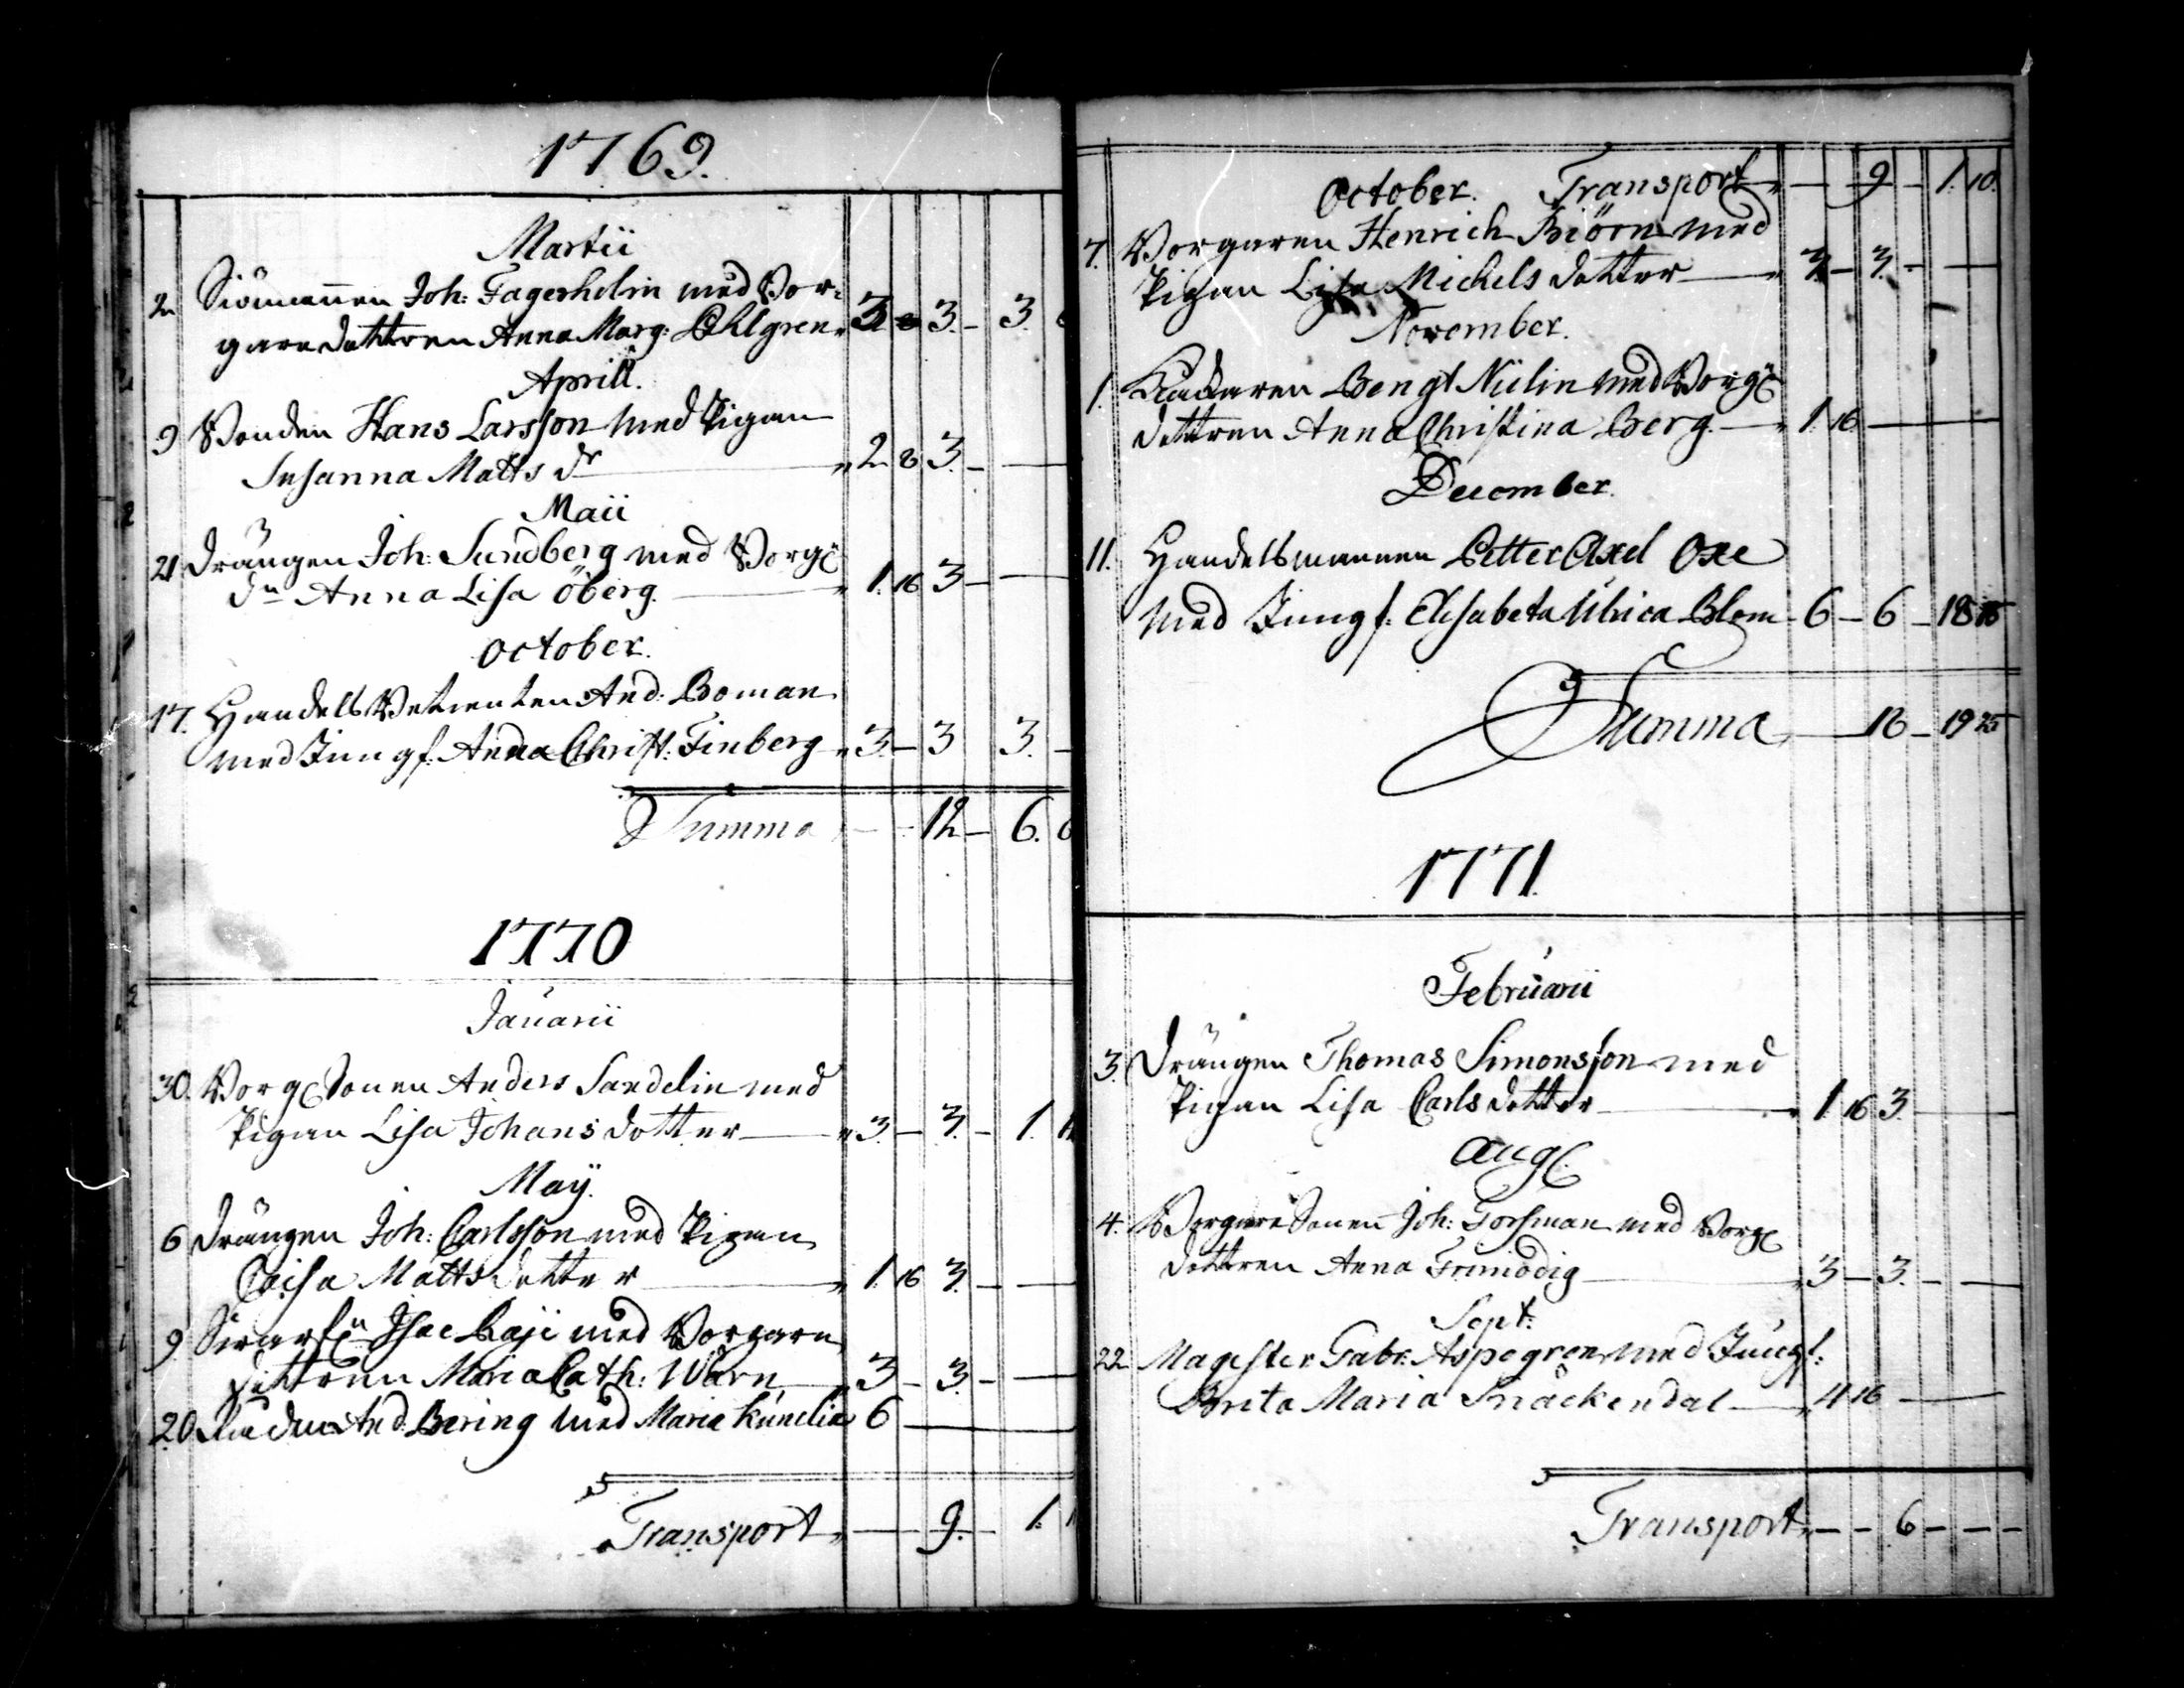 1769.
Martii
2 Siömannen Joh: Fagerholm med Bor-
gare dottren Anna Marg: Ahlgren " 3. - 3. - 3.
Aprill.
9 Bonden Hans Larsson med Pigan
Susanna Matts dr " 2 8 3. - -
Maii
21 Drängen Joh: Sundberg med Borg:
dn Anna Lisa Öberg. " 1. 16 3 - -
October.
17. Handels Betienten And: Boman
med Jungf. Anna Christ: Finberg " 3. - 3 3. -
Summa - - 12 - 6.
1770
Januarii
30. Borg: Sonen Anders Sandelin med
Pigan Lisa Johans dotter " 3. - 3. - 1.
Maÿ.
6 Drängen Joh: Carlsson med Pigan
Caisa Matts dotter " 1. 16 3. - -
9 Isac med Borgare
dottren Maria Cath: Warn 3 - 3. - -
20 And: Bering med Maria 6 -
Transport " - 9. - 1.
October. Transport " - 9 - 1. 10.
7. Borgaren Henrich Biörn med
Pigan Lisa Michels dotter " 3. - 3. - -
November.
1. Bengt Nielin med Borg:
dottren Anna Christina Berg. " 1. 16 - -
December.
11. Handelsmannen Petter Axel Oxe
med Jungf: Elisabeta Ulrica Blom - 6 - 6 - 18 15
Summa - 18 - 19 25
1771.
Februarii
3. Drängen Thomas Simonsson med
Pigan Lisa Carls dotter " 1 16 3. -
Aug:
4. Borgare Sonen Joh: Forsman med Borg:
dottren Anna Frimodig 3 - 3. - -
Sept:
22 Magister Gabr: Aspegren med Jungf:
Brita Maria Snäckendal " 4 16 -
Transport " - - 6 - - -